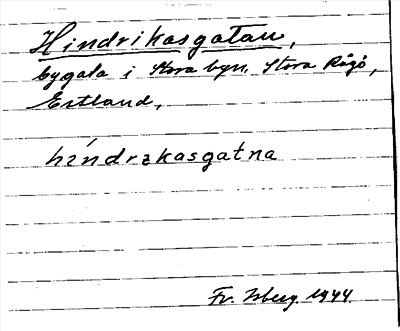 Hindrikasgatan,
bygata i Stora byn, Stora Rågö,
Estland,
híndrakasgatna
Fr. Isberg 1944.